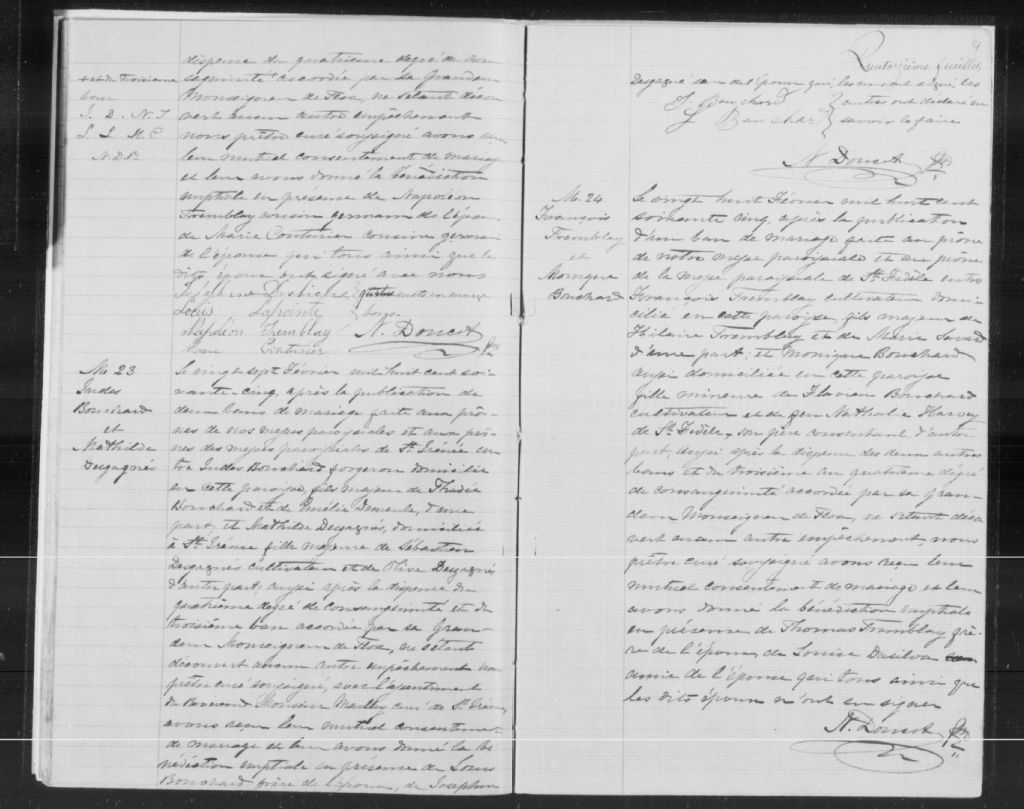 dispense du quatrième degré de con
sanguinité + accordée par sa Grandeur
Monseigneur de Tloa, ne s'étant décou
vert aucun autre empêchement
nous prêtre curé soussigné avons reçu
leur mutuel consentement de mariage
et leur avons donné la bénédiction
nuptiale en présence de Napoléon
Tremblay cousin germain de l'époux
de Marie Couturier cousine germaine
de l'épouse qui tous ainsi que les
dits époux ont signé avec nous
+ et du troisième
ban
N.D.P.
Joséphine Desbiens
Louis Lapointe
Napoléon Tremblay
Couturier
mots en marge
bons
N. Doucet Ptre
No 23
Judes
Bouchard
et
Mathilde
Desgagnés
Le vingt sept Février mil huit cent soi-
xante-cinq, après la publication de
deux bans de mariage faite aux prô-
nes de nos messes paroissiales et aux prô-
nes des messes paroissiales de St Irénée en
tre Judes Bouchard forgeron domicilié
en cette paroisse, fils majeur de Thadée
Bouchard et de Emélie Demeule, d'une
part; et Mathilde Desgagnés, domiciliée
à St Irénée fille majeure de Sébastien
Desgagnés cultivateur et de Olive Desgagnés
d'autre part; aussi après la dispense du
quatrième degré de consanguinité et du
troisième ban accordée par sa Gran-
deur Monseigneur de Tloa, ne s'étant
découvert aucun autre empêchement nous
prêtre curé soussigné, avec l'assentiment
du révérend Monsieur Mailley curé de St Irénée
avons reçu leur mutuel consentement
de mariage et leur avons donné la bé
nédiction nuptiale en présence de Louis
Bouchard frère de l'époux, de Joseph
Quatorzième feuillet
Desgagné de l'épouse qui, les ont signé, les
autres ont déclaré ne
savoir le faire
J Bouchard
L Bouchard
N. Doucet Ptre
No. 24
François
Tremblay
et
Monique
Bouchard
Le vingt huit Février mil huit cent
soixante cinq, après la publication
d'un ban de mariage faite au prône
de notre messe paroissiale et au prône
de la messe paroissiale de St Fidèle entre
François Tremblay cultivateur domi-
cilié en cette paroisse, fils majeur de
Hilaire Tremblay et de Marie Savard
d'une part; et Monique Bouchard
aussi domiciliée en cette paroisse
fille mineure de Flavien Bouchard
cultivateur et de feu Nathalie Harvey
de St Fidèle, son père consentant d'autre
part; aussi après la dispense des deux autres
bans et du troisième au quatrième dégré
de consanguinité accordée par sa Gran-
deur Monseigneur de Tloa, ne s'étant décou
vert aucun autre empêchement, nous
prêtre curé soussigné avons reçu leur
mutuel consentement de mariage et leur
avons donné la bénédiction nuptiale
en présence de Thomas Tremblay frè-
re de l'époux, de Louise Dasilva
amie de l'épouse qui tous ainsi que
les dits époux n'ont su signer
N. Doucet Ptre